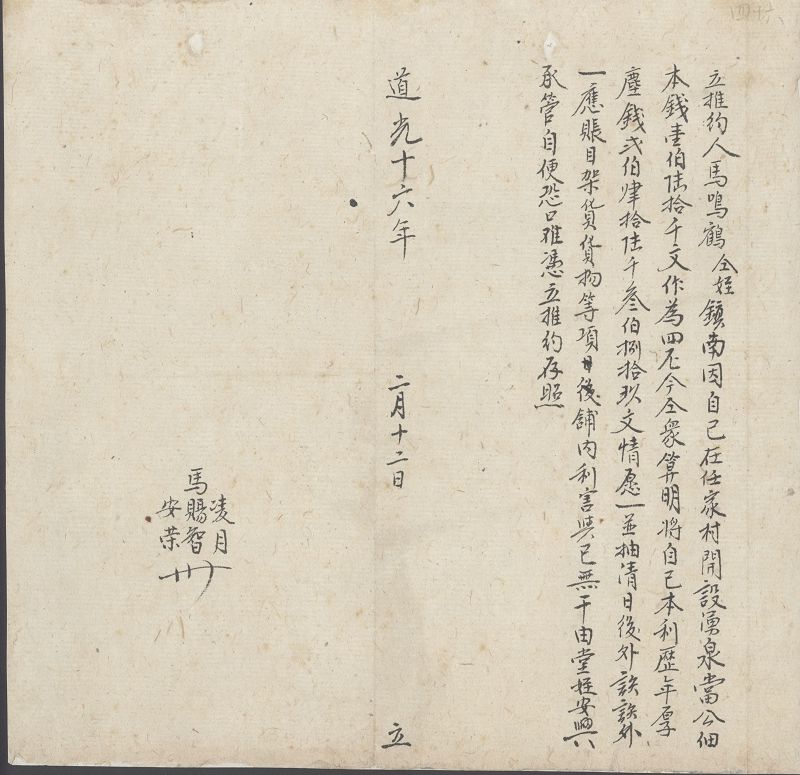 四十六
立推約人馬鳴鶴仝姪鎮南因自己在任家村開設湧泉當公佃
本錢壹伯陸拾千文作為四厘今仝衆算明將自己本利歷年厚
塵錢弍伯肆拾陸千叁伯捌拾玖文情愿一並抽清日後外該該外
一應賬目架貨貨物等項日後舖内利害與己無干由堂姪安興
承管自便恐口难憑立推約存照
道光十六年 二月十二日 立
凌月
馬賜智
安荣